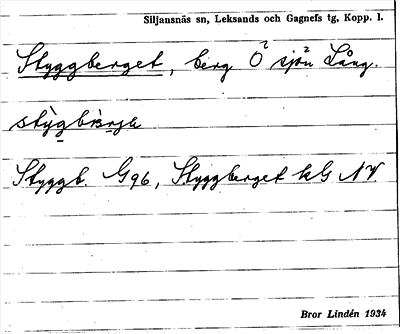 Siljansnäs sn, Leksands och Gagnefs tg, Kopp. l.
Styggberget, berg Ö sjön Lång.
Styggb. G96, Styggberget kG NV.
Bror Lindén 1934